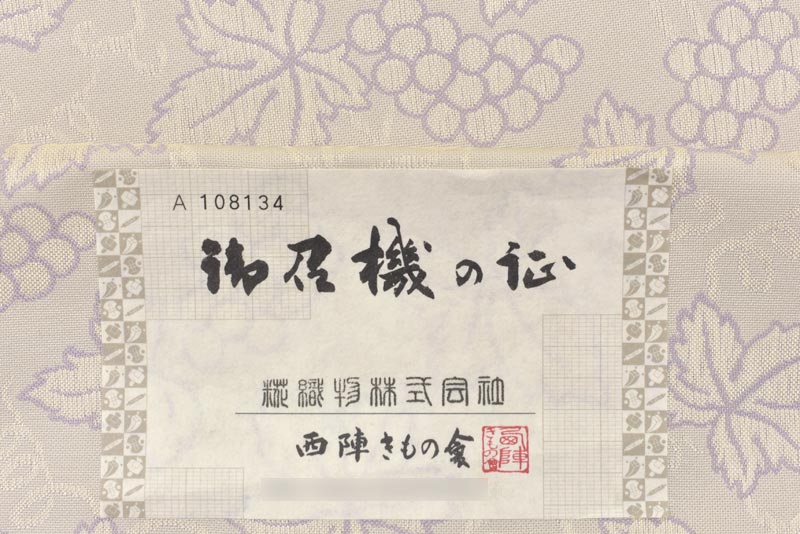 A 108134
御召機の証
糀織物株式会社
西陣きもの會
西陣きもの會